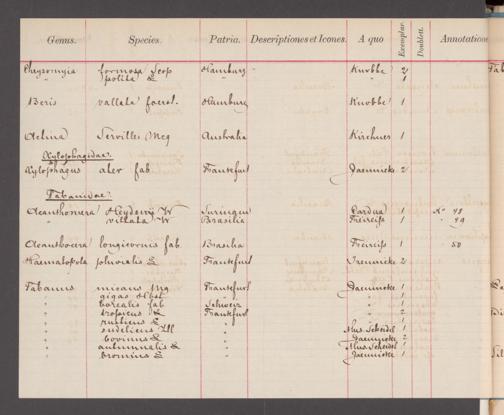 Genus. Species. Patria. Descriptiones et Icones. A quo Exemplar. Doublett. Annotatione
Chrysomyia formosa Scop Hamburg Knobbe 2
" polita L " " 1
Beris vallata forst. Hamburg Knobbe 1
Servillei Mcq Australia Kirchner 1
Xylophagidae.
Xylophagus ater fab. Frankfurt Jaennicke 2
Tabanidae.
Acanthomera Heydenii W Surinam 1 No 48
" vittata W Brasilia Freireiss 1 " 49
Acanthocera longicornis fab. Brasilia Freireiss 1 50
Haematopota pluvialis L Frankfurt Jaennicke 2
Tabanus micans Mg Frankfurt Jaennicke 1
" gigas Hbst " " 1
" borealis fab Schweiz " 1
" tropicus L Frankfurt " 2
" rusticus L " "
" sudeticus Zll " Mus. Scheidel 1
" bovinus L " Jaennicke 2
" autumnalis L " Mus. Scheidel 1
" bromius L " Jaennicke 1